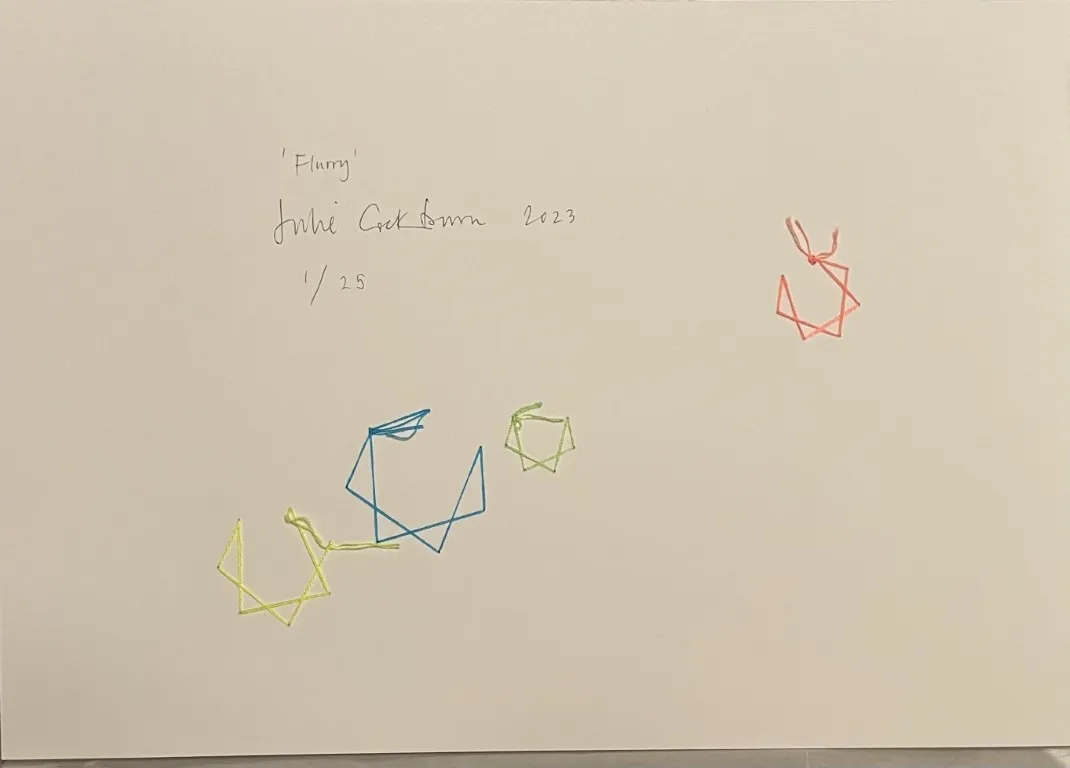 'Flurry'
Julie Cockburn 2023
1/25